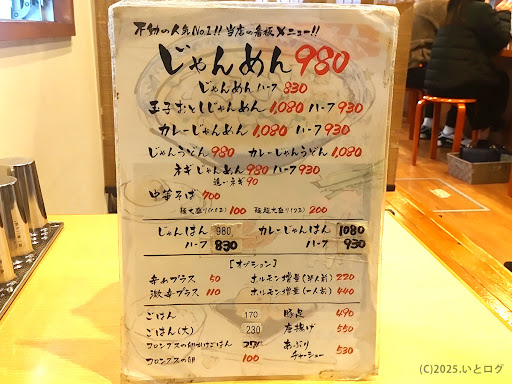 不動の人気No.1!! 当店の看板メニュー!!
じゃんめん 980
じゃんめん ハーフ 830
玉子おとしじゃんめん 1,080 ハーフ 930
カレーじゃんめん 1,080 ハーフ 930
じゃんうどん 980 カレーじゃんうどん 1,080
ネギじゃんめん 980 ハーフ 930
追いネギ 90
中華そば 700
麺大盛り(1.5玉) 100 麺超大盛り(2玉) 200
じゃんはん 980 カレーじゃんはん 1080
ハーフ 830 ハーフ 930
[オプション]
辛れプラス 50 ホルモン増量(半人前) 220
激辛プラス 110 ホルモン増量(一人前) 440
ごはん 170 豚足 490
ごはん(大) 230 唐揚げ 550
コロンブスの卵かけごはん あぶりチャーシュー 530
コロンブスの卵 100
(C)2025.いとログ